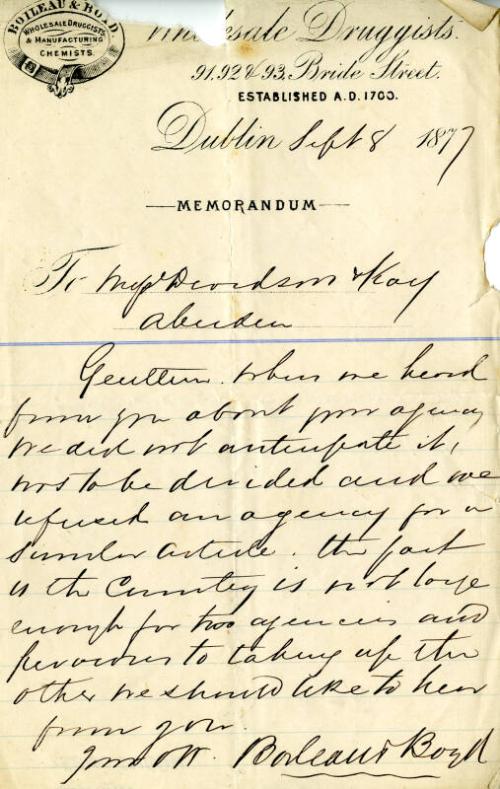 BOILEAU & BOYD.
WHOLESALE DRUGGISTS
& MANUFACTURING
CHEMISTS.
Wholesale Druggists.
91, 92 & 93, Bride Street.
ESTABLISHED A.D. 1700.
Dublin Sept 8 1877
MEMORANDUM
To Messrs Davidson & Kay
Aberdeen
Gentlemen. When we heard
from you about your agency
we did not anticipate it,
was to be divided and we
refused an agency for a
similar article. The fact
is the Country is not large
enough for two agencies and
previous to taking up the
other we should like to hear
from you.
Boileau & Boyd